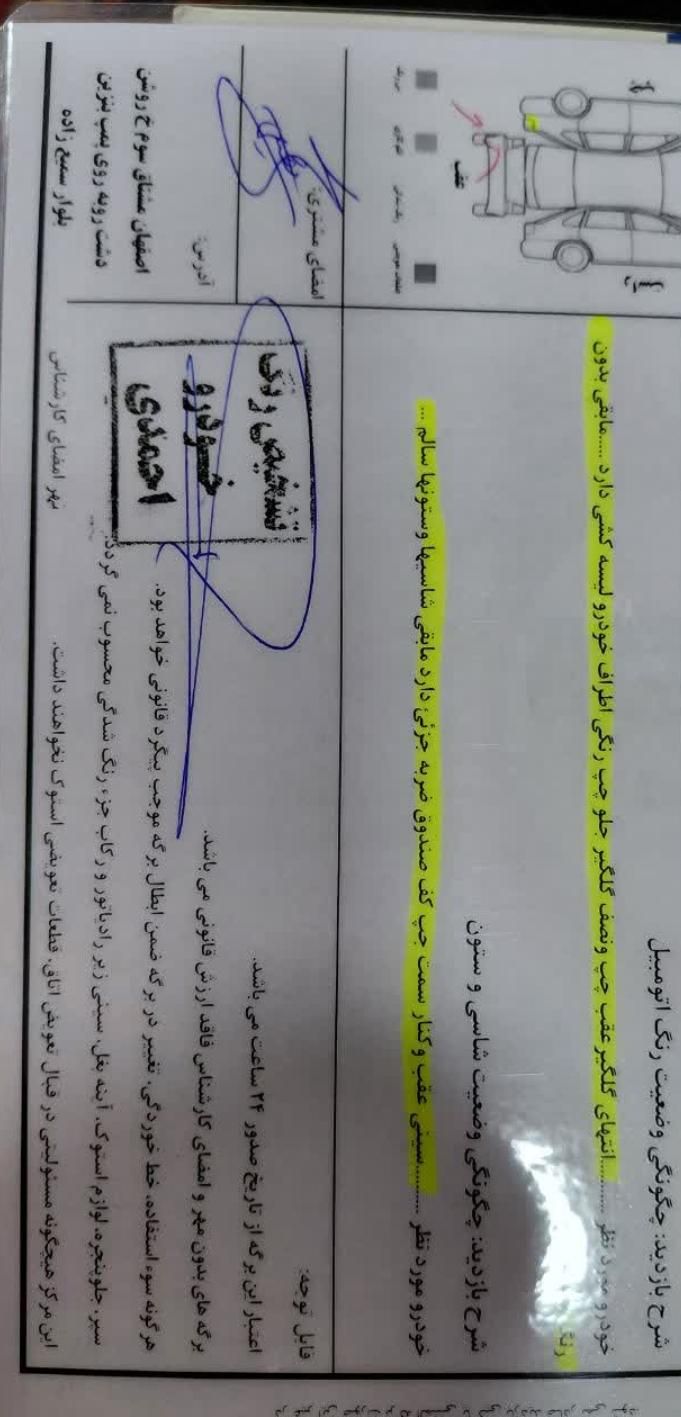 شرح بازدید: چگونگی وضعیت رنگ اتومبیل
خودرو مورد نظر ..........انتهای گلگیر عقب چپ ونصف گلگیر جلو چپ رنگی اطراف خودرو لیسه کشی دارد .....مابقی بدون
رنگ
شرح بازدید: چگونگی وضعیت شاسی و ستون
خودرو مورد نظر ..........سینی عقب وکنار سمت چپ کف صندوق ضربه جزئی دارد مابقی شاسیها وستونها سالم ...
عقب
امضای مشتری:
آدرس:
اصفهان مشتاق سوم خ روشن
دشت روبه روی پمپ بنزین
بلوار سمیع زاده
قابل توجه:
اعتبار این برگه از تاریخ صدور ۲۴ ساعت می باشد.
برگه های بدون مهر و امضای کارشناس فاقد ارزش قانونی می باشد.
هرگونه سوء استفاده، خط خوردگی، تغییر در برگه ضمن ابطال برگه موجب پیگرد قانونی خواهد بود.
سپر، جلوپنجره، لوازم استوک، آینه بغل، سینی زیر رادیاتور و رکاب جزء رنگ شدگی محسوب نمی گردد.
این مرکز هیچگونه مسئولیتی در قبال تعویض اتاق، قطعات تعویضی استوک نخواهند داشت.
مهر امضای کارشناس
تشخیص رنگ
خودرو
احمدی